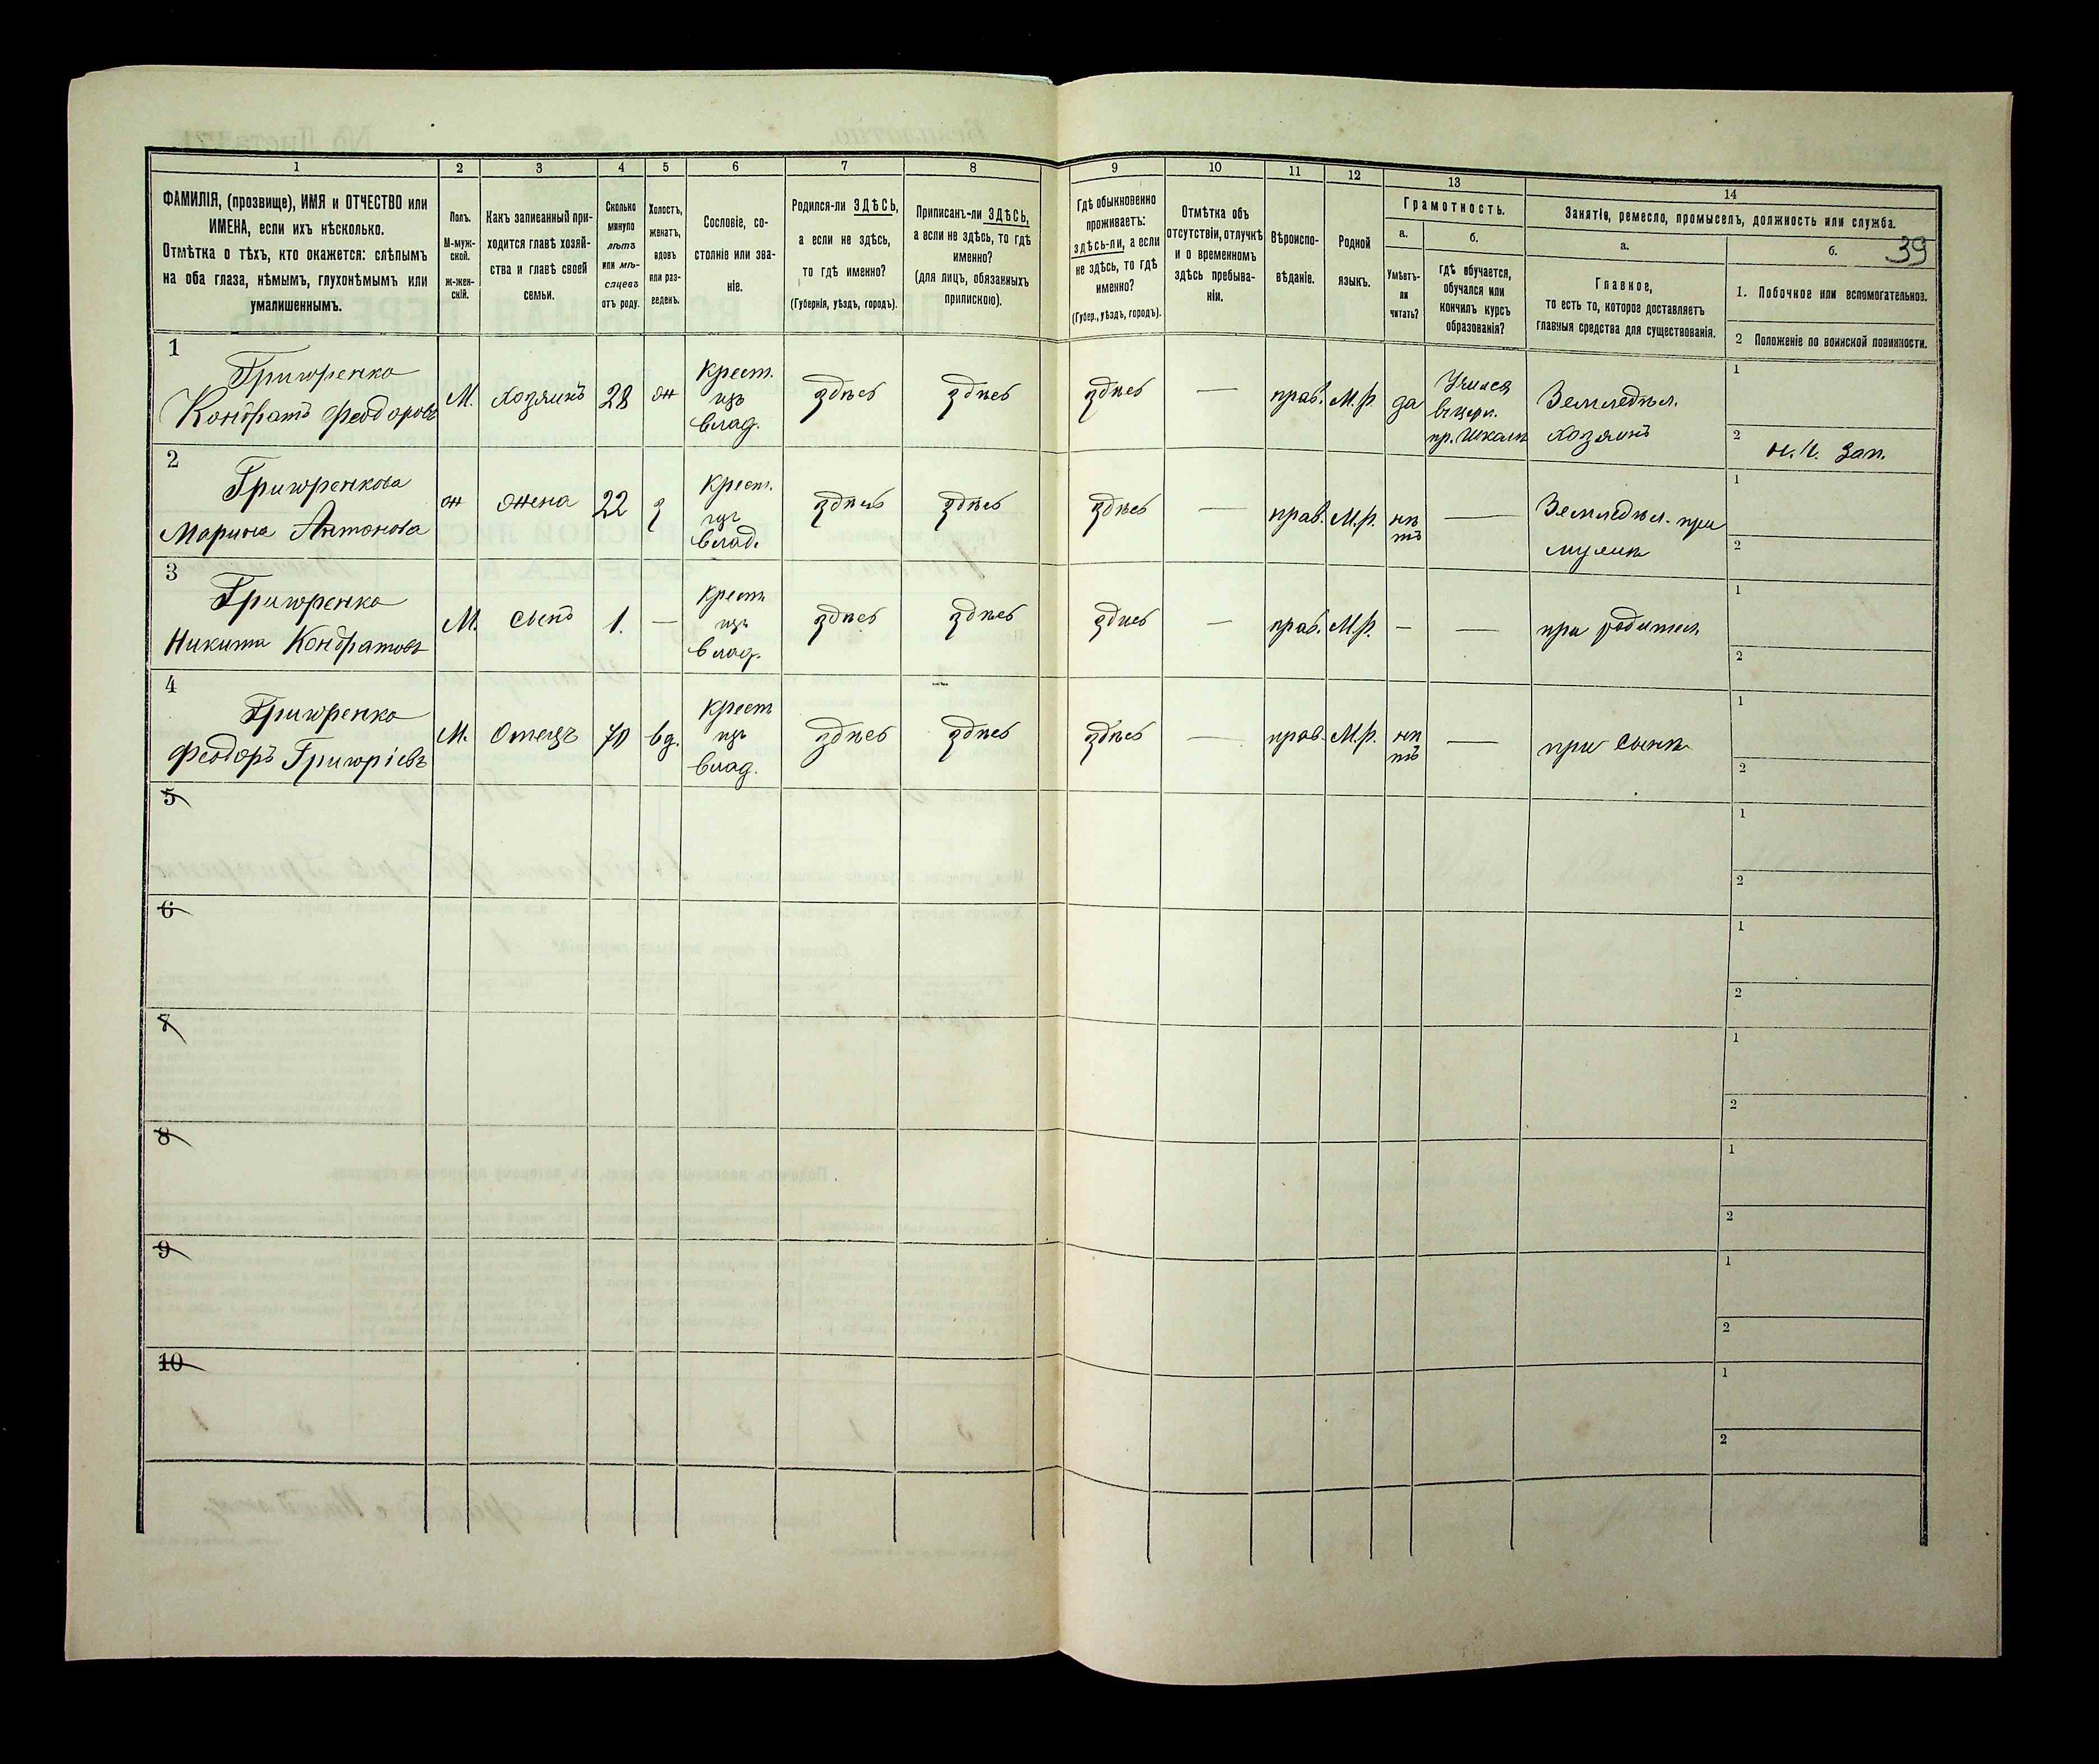 1 2 3 4 5 6 7 8 9 10 11 12 13 14
ФАМИЛІЯ, (прозвище), ИМЯ и ОТЧЕСТВО или
ИМЕНА, если ихъ нѣсколько.
Отмѣтка о тѣхъ, кто окажется: слѣпымъ
на оба глаза, нѣмымъ, глухонѣмымъ или
умалишеннымъ.
Полъ.
М-муж-
ской.
Ж-жен-
скій.
Какъ записанный при-
ходится главѣ хозяй-
ства и главѣ своей
семьи.
Сколько
минуло
лѣтъ
или мѣ-
сяцевъ
отъ роду.
Холостъ,
женатъ,
вдовъ
или раз-
веденъ.
Сословіе, со-
стояніе или зва-
ніе.
Родился-ли ЗДѢСЬ,
а если не здѣсь,
то гдѣ именно?
(Губернія, уѣздъ, городъ).
Приписанъ-ли ЗДѢСЬ,
а если не здѣсь, то гдѣ
именно?
(для лицъ, обязанныхъ
припискою).
Гдѣ обыкновенно
проживаетъ:
здѣсь-ли, а если
не здѣсь, то гдѣ
именно?
(Губер., уѣздъ, городъ).
Отмѣтка объ
отсутствіи, отлучкѣ
и о временномъ
здѣсь пребыва-
ніи.
Вѣроиспо-
вѣданіе.
Родной
языкъ.
Грамотность.
а.
Умѣетъ-
ли
читать?
б.
гдѣ обучается,
обучался или
кончилъ курсъ
образованія?
Занятіе, ремесло, промыселъ, должность или служба.
а.
Главное,
то есть то, которое доставляетъ
главныя средства для существованія.
б.
39
1. Побочное или вспомогательное.
2 Положеніе по воинской повинности.
1
Григоренко
Кондратъ Феодоровъ
М.
хозяинъ
28
ж
Крест.
изъ
влад.
здѣсь
здѣсь
здѣсь
—
прав.
М.р.
да
Учился
въ церк.
пр. школѣ
Земледѣл.
хозяинъ
1
2
н. ч. зап.
2
Григоренкова
Марина Антонова
ж
жена
22
з
Крест.
изъ
влад.
здѣсь
здѣсь
здѣсь
—
прав.
М.р.
нѣ
тъ
—
Земледѣл. при
мужѣ
1
2
3
Григоренко
Никита Кондратовъ
М.
сынъ
1.
—
Крест
изъ
влад.
здѣсь
здѣсь
здѣсь
—
прав.
М.р.
—
—
при родител.
1
2
4
Григоренко
Феодоръ Григоріевъ
М.
Отецъ
70
вд.
Крест
изъ
влад.
здѣсь
здѣсь
здѣсь
—
прав.
М.р.
нѣ
тъ
—
при сынѣ
1
2
5
1
2
6
1
2
7
1
2
8
1
2
9
1
2
10
1
2